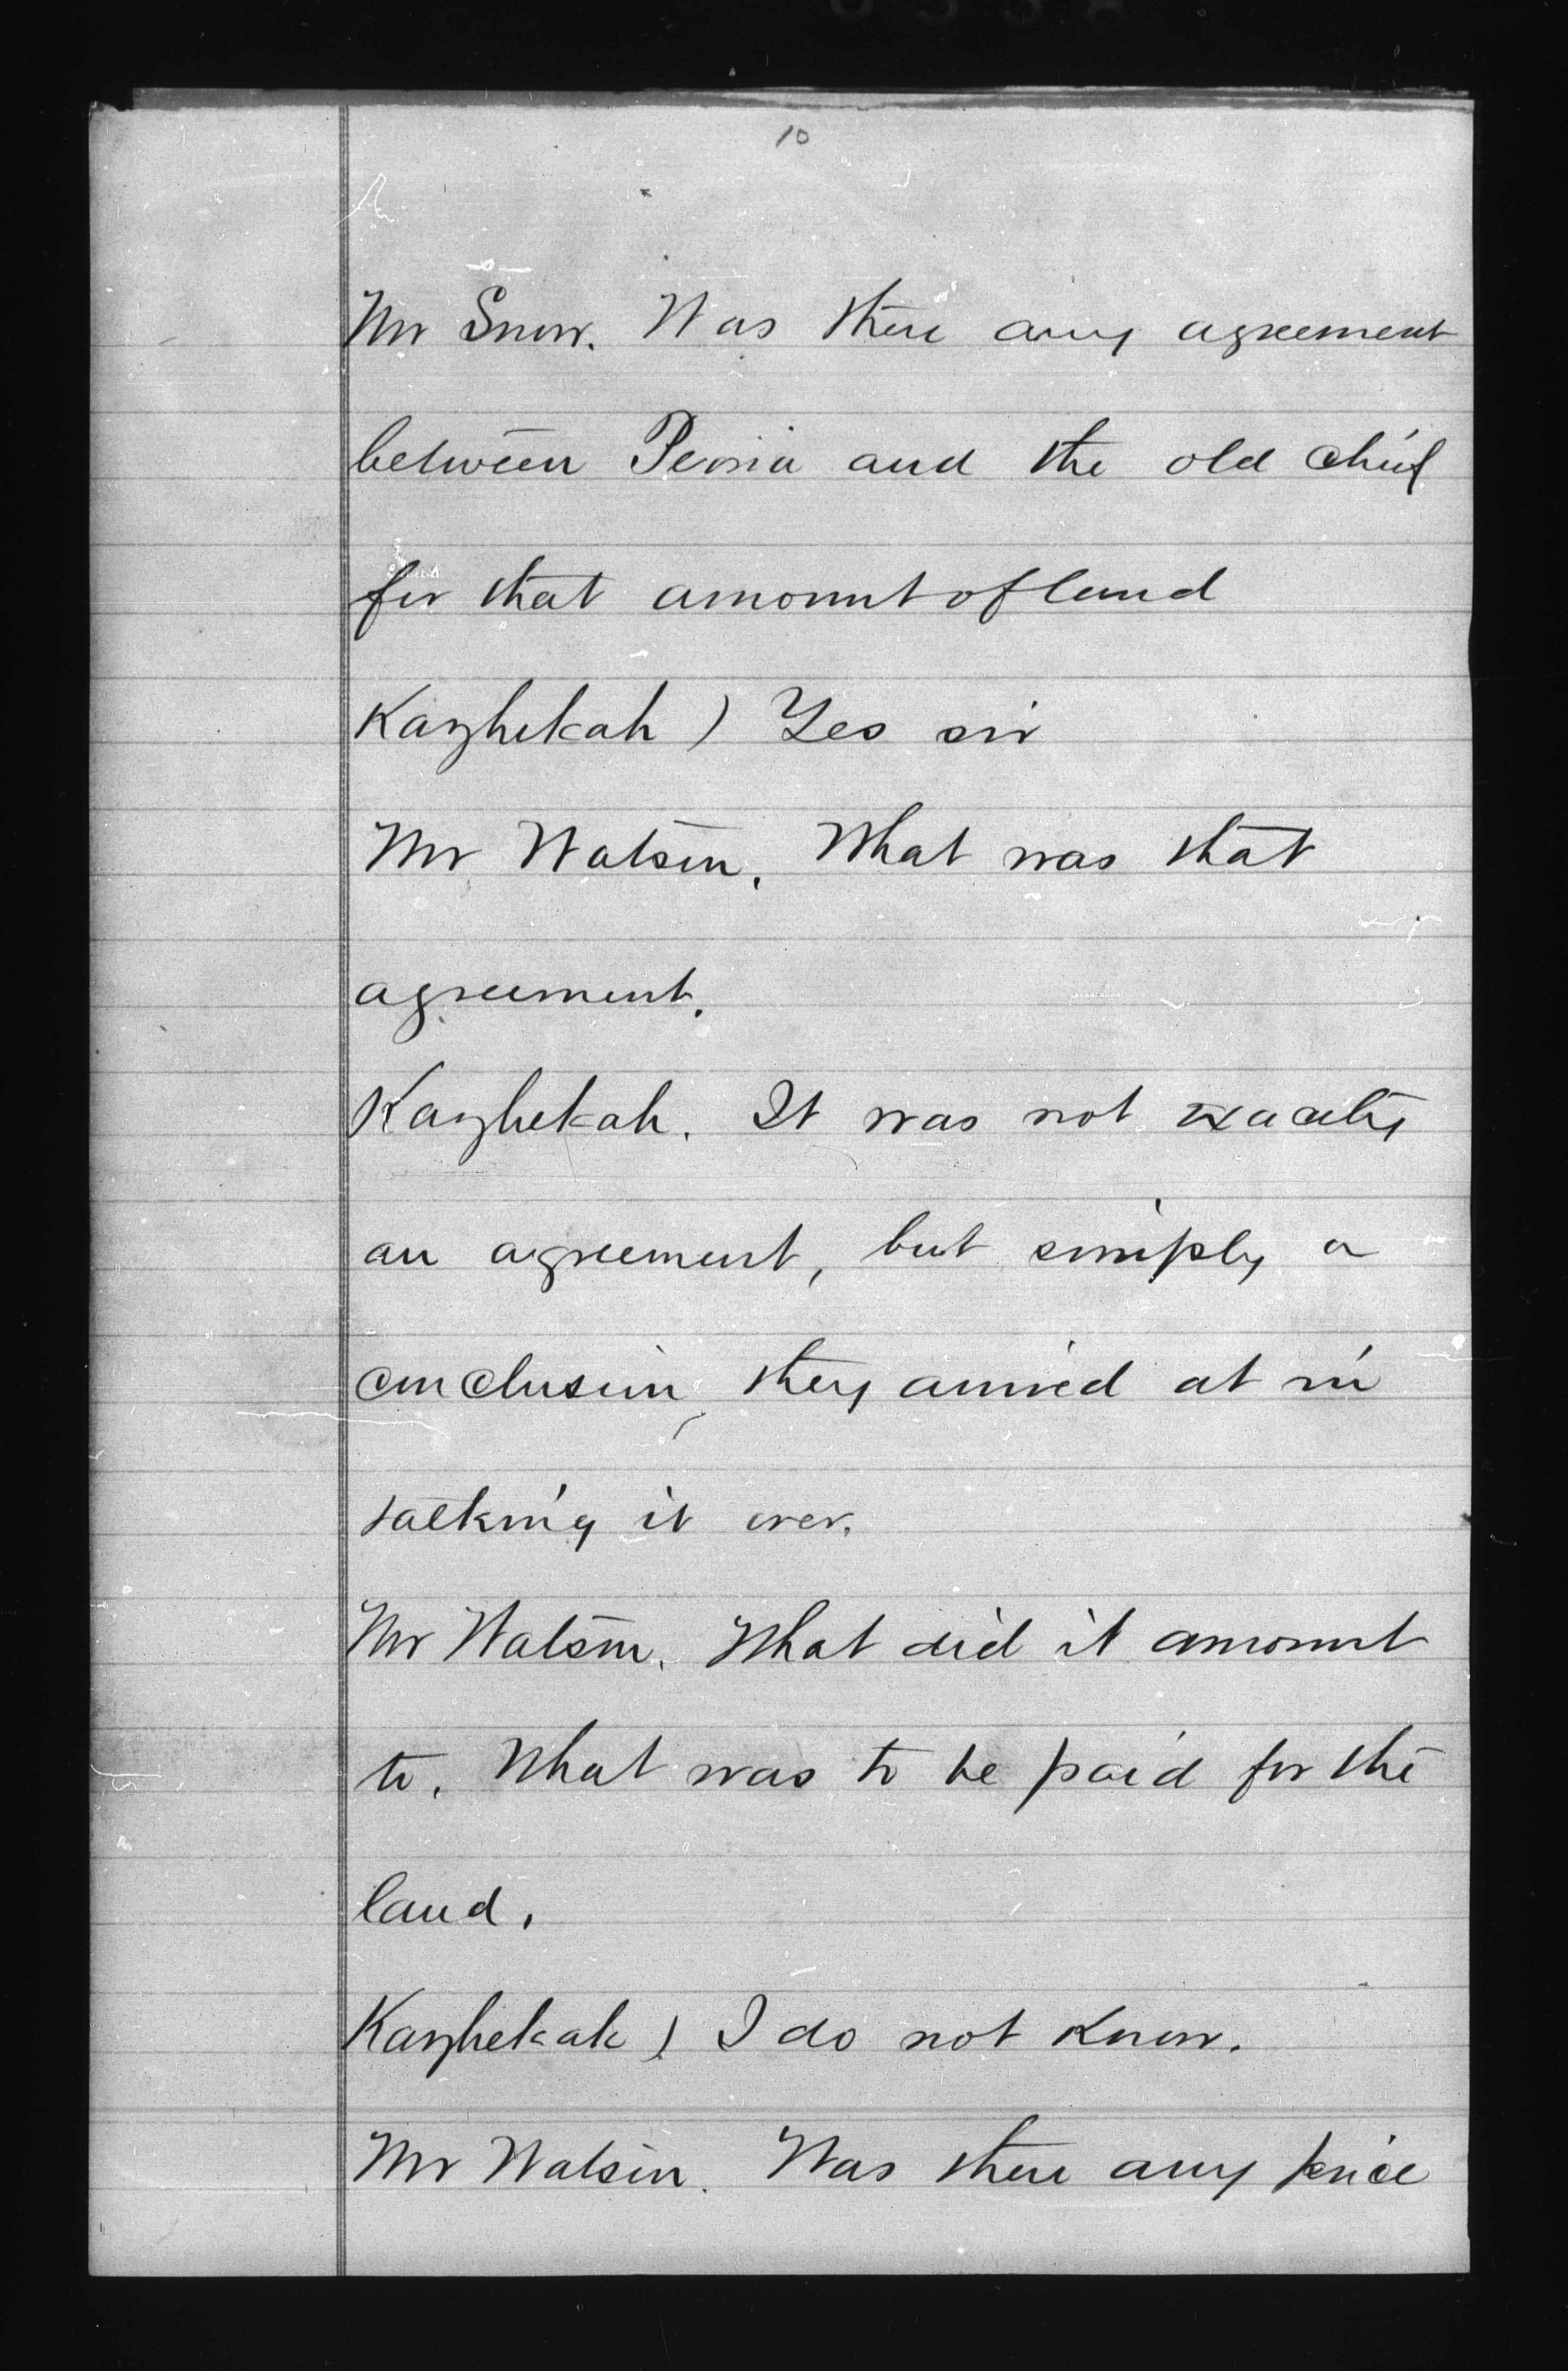 10
Mr Snow. Was there any agreement
between Peoria and the old chief
for that amount of land
Kazhekah ) Yes sir
Mr Watson. What was that
agreement.
Kazhekah. It was not exactly
an agreement, but simply a
conclusion they arrived at in
talking it over.
Mr Watson. What did it amount
to. What was to be paid for the
land.
Kazhekah ) I do not know.
Mr Watson. Was there any price